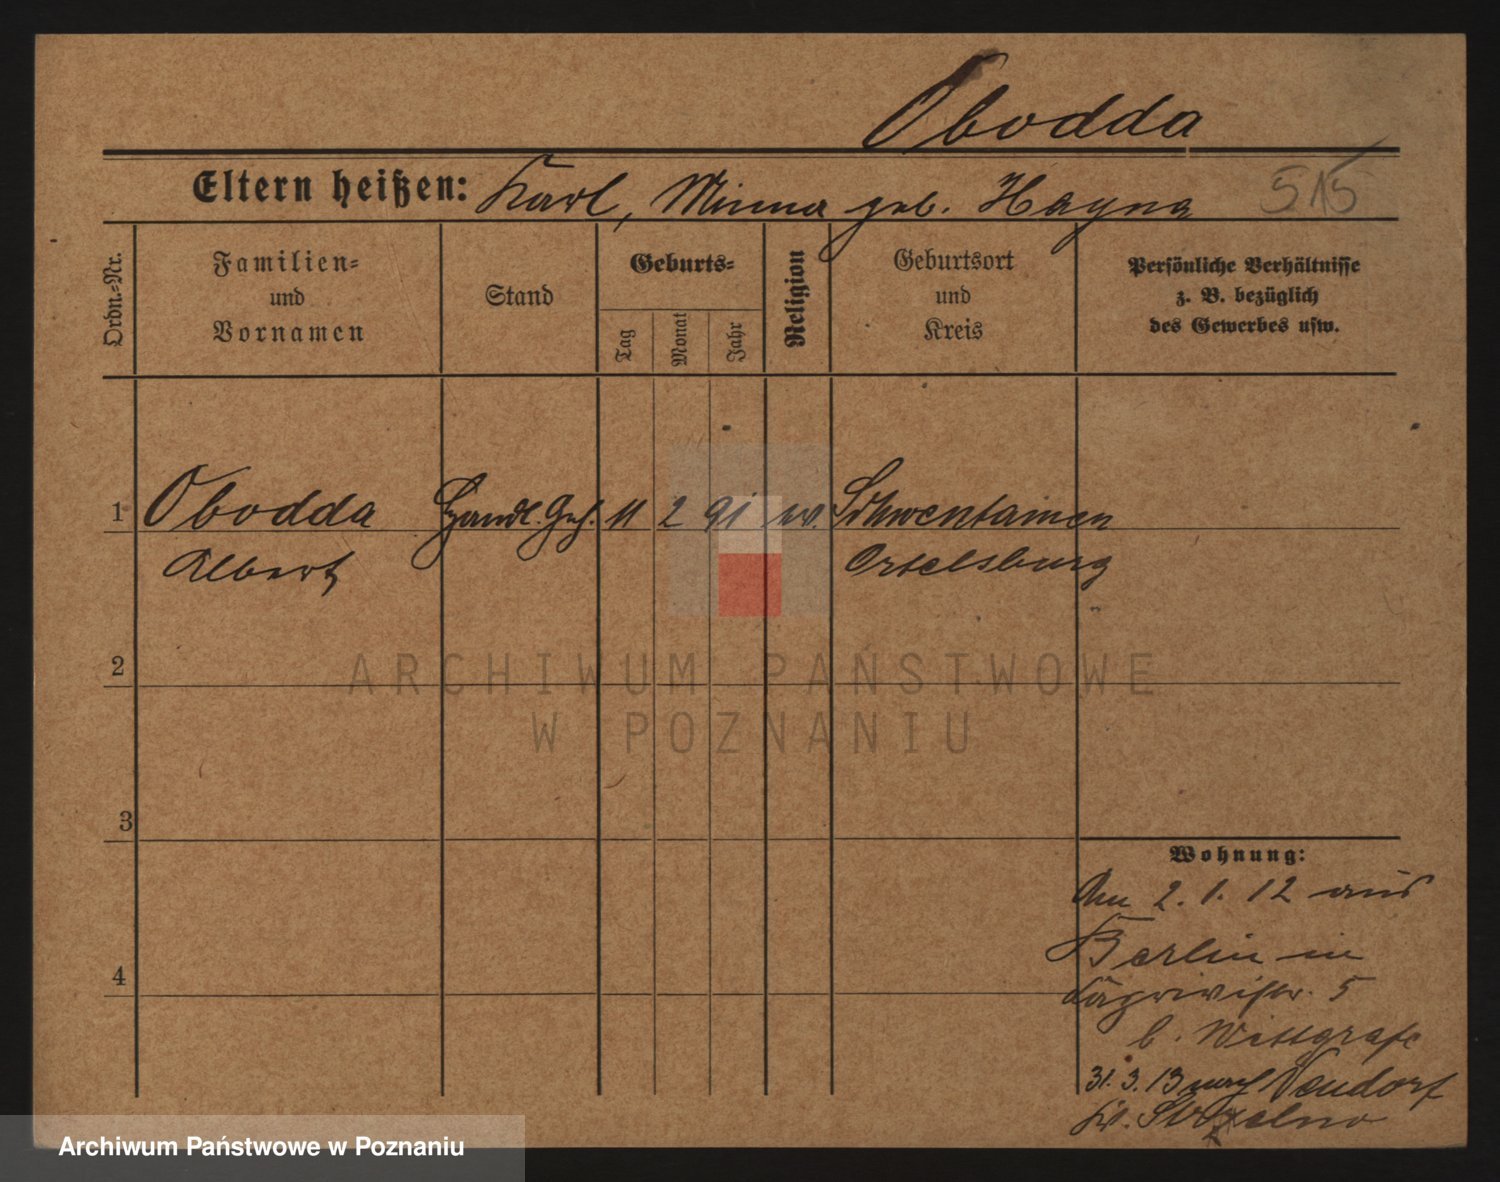 Obodda
Eltern heißen: Karl, Minna geb. Hayna 515
Ordn.-Nr.
Familien-
und
Vornamen
Stand
Geburts-
Tag
Monat
Jahr
Religion
Geburtsort
und
Kreis
Persönliche Verhältnisse
z. B. bezüglich
des Gewerbes usw.
1 Obodda Handl. Geh. 11 2 91 ev. Schwentainen
Albert Ortelsburg
2
3
4
Wohnung:
Am 2. 1. 12 aus
Berlin in
5
b. Wittgrafe
31. 3. 13 nach Neudorf
Kr. Strzelno
ARCHIWUM PAŃSTWOWE
W POZNANIU
Archiwum Państwowe w Poznaniu